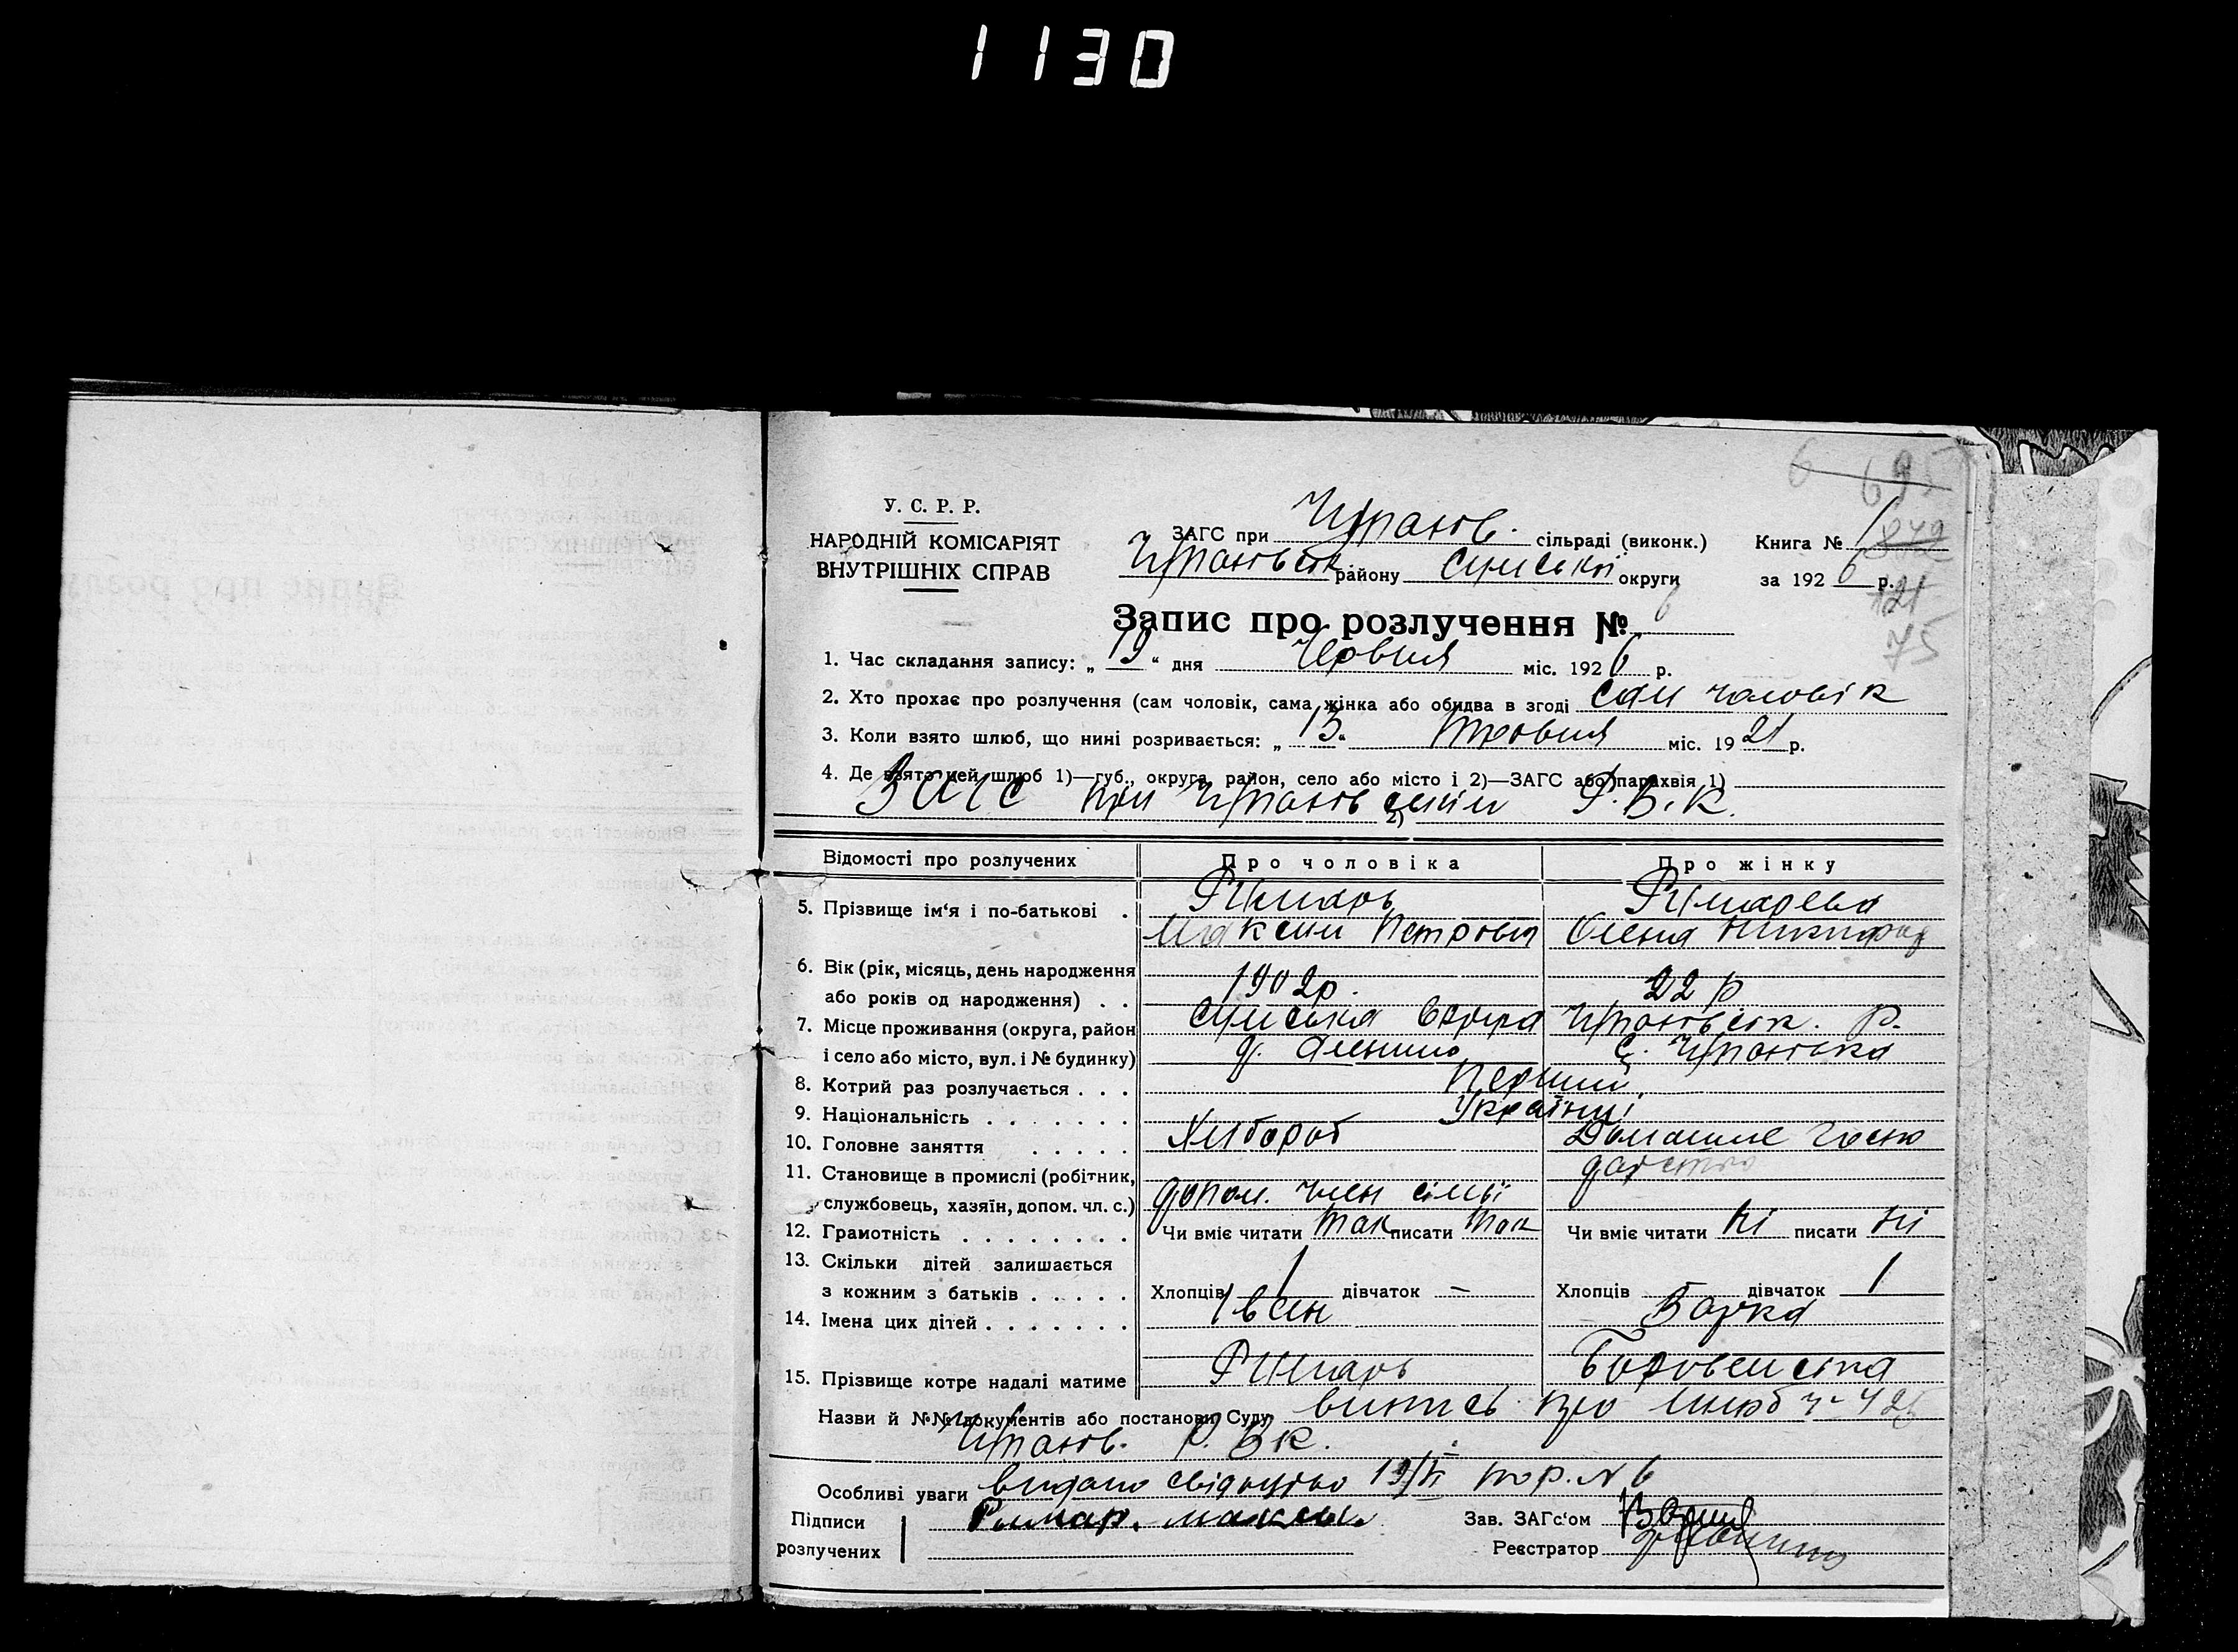 1130
6 695
У. С. Р. Р.
НАРОДНІЙ КОМІСАРІЯТ
ВНУТРІШНІХ СПРАВ
ЗАГС при сільраді (виконк.) Книга № 1
району Сумської округи за 1926 р.
121
75
Запис про розлучення № 6
1. Час складання запису: „19“ дня Червня міс. 1926 р.
2. Хто прохає про розлучення (сам чоловік, сама жінка або обидва в згоді сам чоловік
3. Коли взято шлюб, що нині розривається: „13“ травня міс. 1921 р.
4. Де взято цей шлюб 1)—губ., округа, район, село або місто і 2)—ЗАГС або парахвія 1)
ЗАГС при 2) Р.В.К.
Відомості про розлучених Про чоловіка Про жінку
5. Прізвище ім‘я і по-батькові . Римарь Римарева
Максим Петрович Олена
6. Вік (рік, місяць, день народження
або років од народження) . . 1902р. 22 р
7. Місце проживання (округа, район Сумська округа р.
і село або місто, вул. і № будинку) с.
8. Котрий раз розлучається . . . Перший
9. Національність . . . . . . . Українці
10. Головне заняття . . . . . Хлібороб Домашнє госпо
дарство
11. Становище в промислі (робітник,
службовець, хазяїн, допом. чл. с.) допом. член сімьї
12. Грамотність . . . . . . . . Чи вміє читати так писати так Чи вміє читати ні писати ні
13. Скільки дітей залишається
з кожним з батьків . . . . . Хлопців 1 дівчаток — Хлопців дівчаток 1
14. Імена цих дітей . . . . . . .
15. Прізвище котре надалі матиме Римарь
Назви й №№ документів або постанови Суду випись про шлюб
Р.ВК.
Особливі уваги видано свідоцтво 19/VI № 6
Підписи
розлучених Римар. максым
Зав. ЗАГс‘ом
Реєстратор